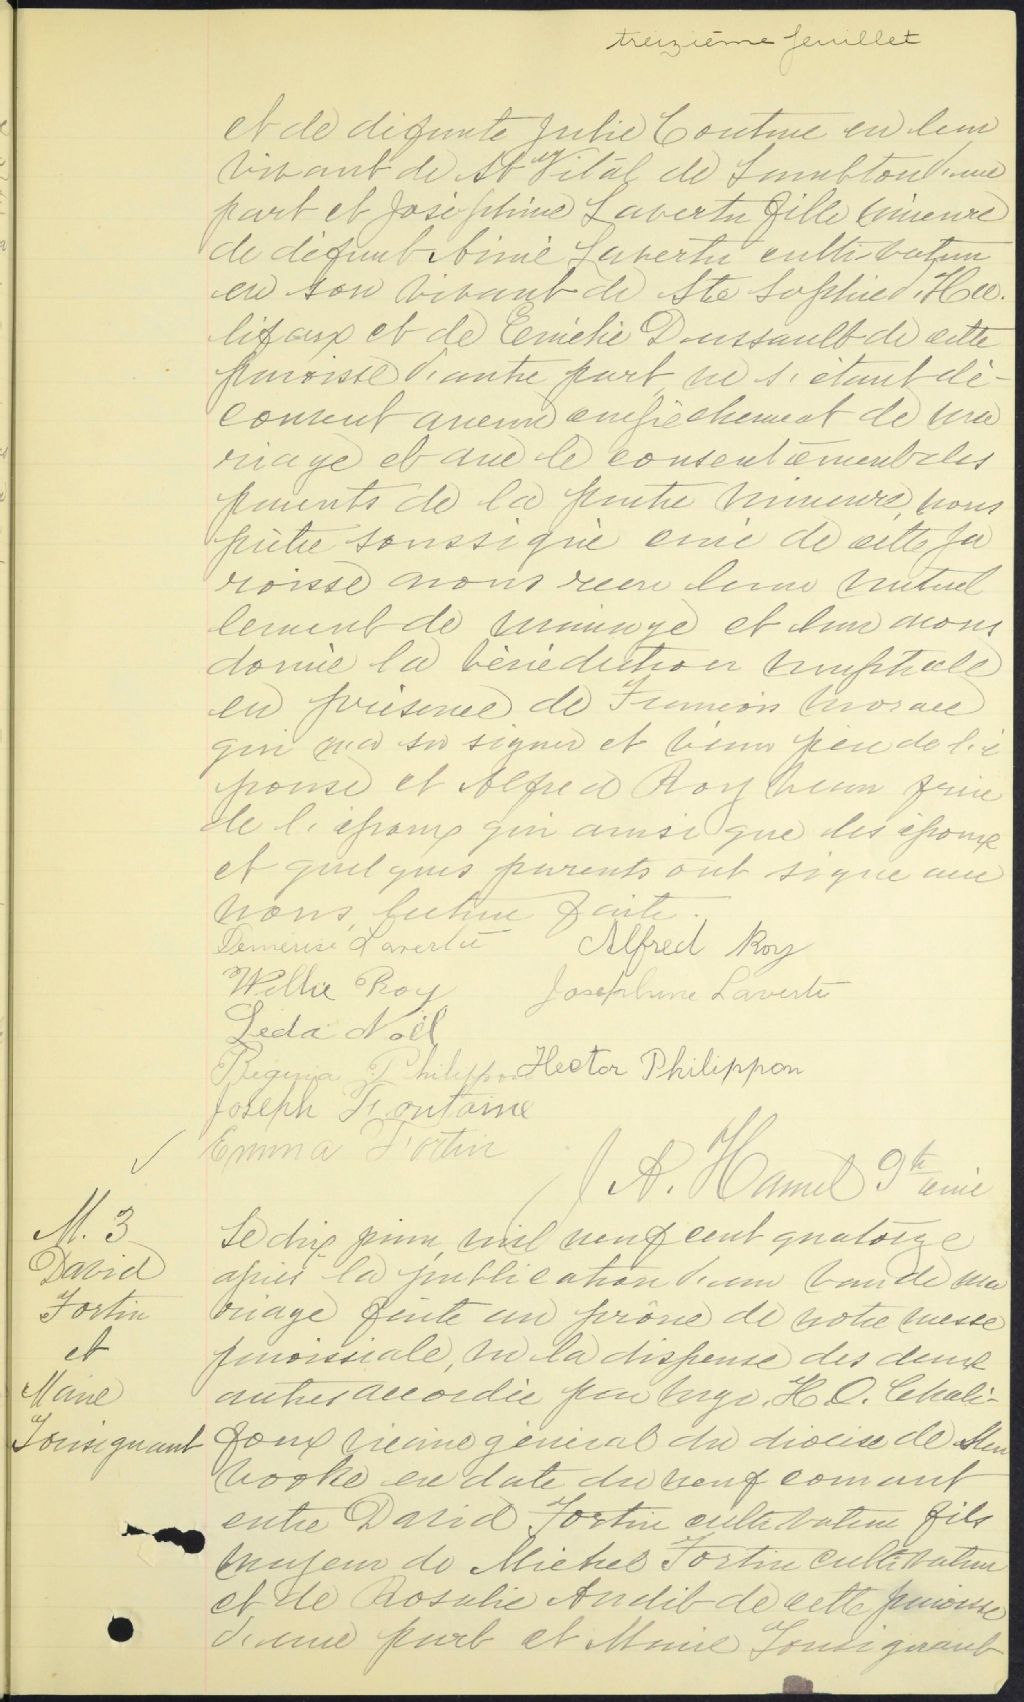 treizième feuillet
et de défunte Julie Couture en leur
vivant de St Vital de Lambton d'une
part et Joséphine Lavertu fille mineure
de défunt Aimé Lavertu cultivateur
en son vivant de Ste Sophie d'Ha
lifax et de Emélie Dussault de cette
paroisse d'autre part, ne s'étant dé-
couvert aucun empêchement de ma
riage et avec le consentement des
parents de la partie mineure, nous
prêtre soussigné curé de cette pa
roisse avons reçu leur mutuel
lement de mariage et leur avons
donné la bénédiction nuptiale
en présence de
qui n'a su signer et beau père de l'é
pouse et Alfred Roy beau frère
de l'époux qui ainsi que les époux
et quelques parents ont signé avec
nous, lecture faite.
Demerise Lavertu Alfred Roy
Willie Roy Josephine Lavertu
Léda Noël
Regina Philippon Hector Philippon
Joseph Fontaine
Emma Fortin
J. A. Hamel Ptre curé
M. 3
David
Fortin
et
Marie
Tousignant
Le dix juin, mil neuf cent quatorze
après la publication d'un ban de ma
riage faite au prône de notre messe
paroissiale, vu la dispense des deux
autres accordée par Mgr. H. O. Chali-
foux vicaire général du diocèse de Sher
brooke en date du neuf courant
entre David Fortin cultivateur fils
majeur de Michel Fortin cultivateur
et de Rosalie Audit de cette paroisse
d'une part et Marie Tousignant